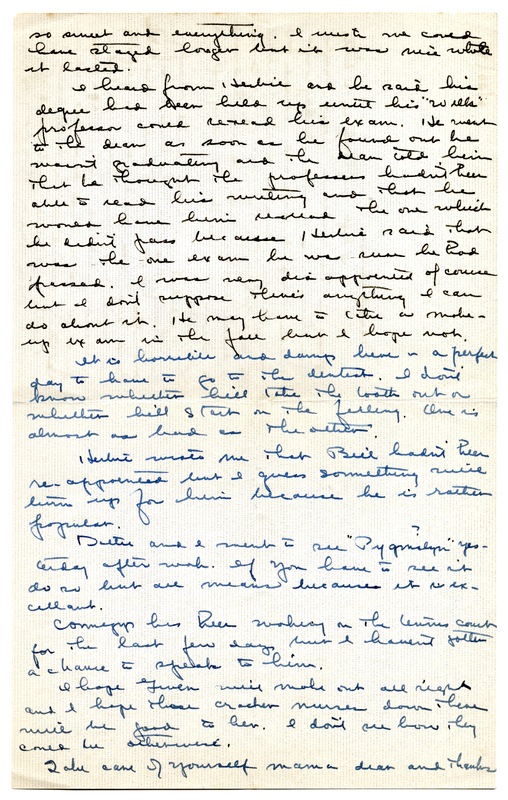 so sweet and everything. I wish we could
have stayed longer but it was nice while
it lasted.
I heard from Herbie and he said his
degree had been held up until his "Wills"
professor could reread his exam. He went
to the dean as soon as he found out he
wasn't graduating and the dean told him
that he thought the professors hadn't been
able to read his writing and that he
would have him reread the one which
he didn't pass because Herbie said that
was the one exam he was sure he had
passed. I was very disappointed of course
but I don't suppose there's anything I can
do about it. He may have to take a make-
up exam in the fall but I hope not.
It is horrible and damp here - a perfect
day to have to go to the dentist. I don't
know whether he'll take the tooth out or
whether he'll start on the filling. One is
almost as bad as the other.
Herbie wrote me that Bill hadn't been
re-appointed but I guess something will
turn up for him because he is rather
popular.
Dottie and I went to see "Pygmalyn"? yes-
terday after work. If you have to see it
do so by all means because it is ex-
cellant.
Connegys has been working on the tennis court
for the last few days but I haven't gotten
a chance to speak to him.
I hope Gwen will make out all right
and I hope those cracker nurses down there
will be good to her. I don't see how they
could be otherwise.
Take care of yourself mama dear and thanks